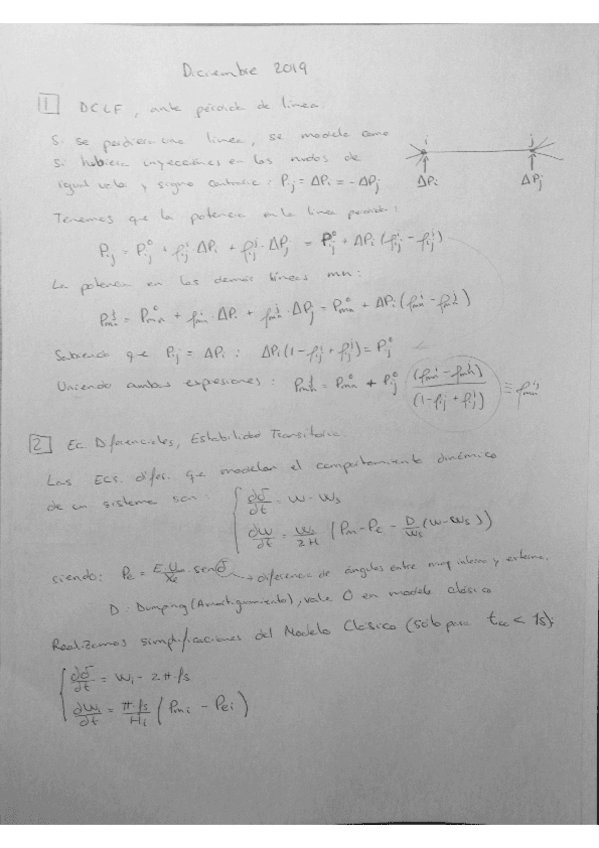 Diciembre 2019
1 DCLF, ante pérdida de línea.
Si se perdiera una línea, se modela como
si hubiera inyecciones en los nudos de
igual valor y signo contrario: Pij = ΔPi = -ΔPj
i j
ΔPi ΔPj
Tenemos que la potencia en la línea perdida:
Pij = P°ij + ρ^i_ij · ΔPi + ρ^j_ij · ΔPj = P°ij + ΔPi (ρ^i_ij - ρ^j_ij)
La potencia en las demás líneas mn:
P^1_mn = P°mn + ρ^i_mn · ΔPi + ρ^j_mn · ΔPj = P°mn + ΔPi (ρ^i_mn - ρ^j_mn)
Sabiendo que Pij = ΔPi : ΔPi (1 - ρ^i_ij + ρ^j_ij) = P°ij
Uniendo ambas expresiones: P^1_mn = P°mn + P°ij (ρ^i_mn - ρ^j_mn) / (1 - ρ^i_ij + ρ^j_ij) ≡ ρ^ij_mn
2 Ec. Diferenciales, Estabilidad Transitoria.
Las Ecs. difer. que modelan el comportamiento dinámico
de un sistema son: dδ/dt = W - Ws
dW/dt = Ws/2H (Pm - Pe - D/Ws (W - Ws))
siendo: Pe = E·U∞/Xe · sen δ → diferencia de ángulos entre muy interna y externa.
D: Dumping (Amortiguamiento), vale 0 en modelo clásico
Realizamos simplificaciones del Modelo Clásico (sólo para tcc < 1s):
dδ/dt = Wi - 2π·fs
dWi/dt = π·fs/Hi (Pmi - Pei)